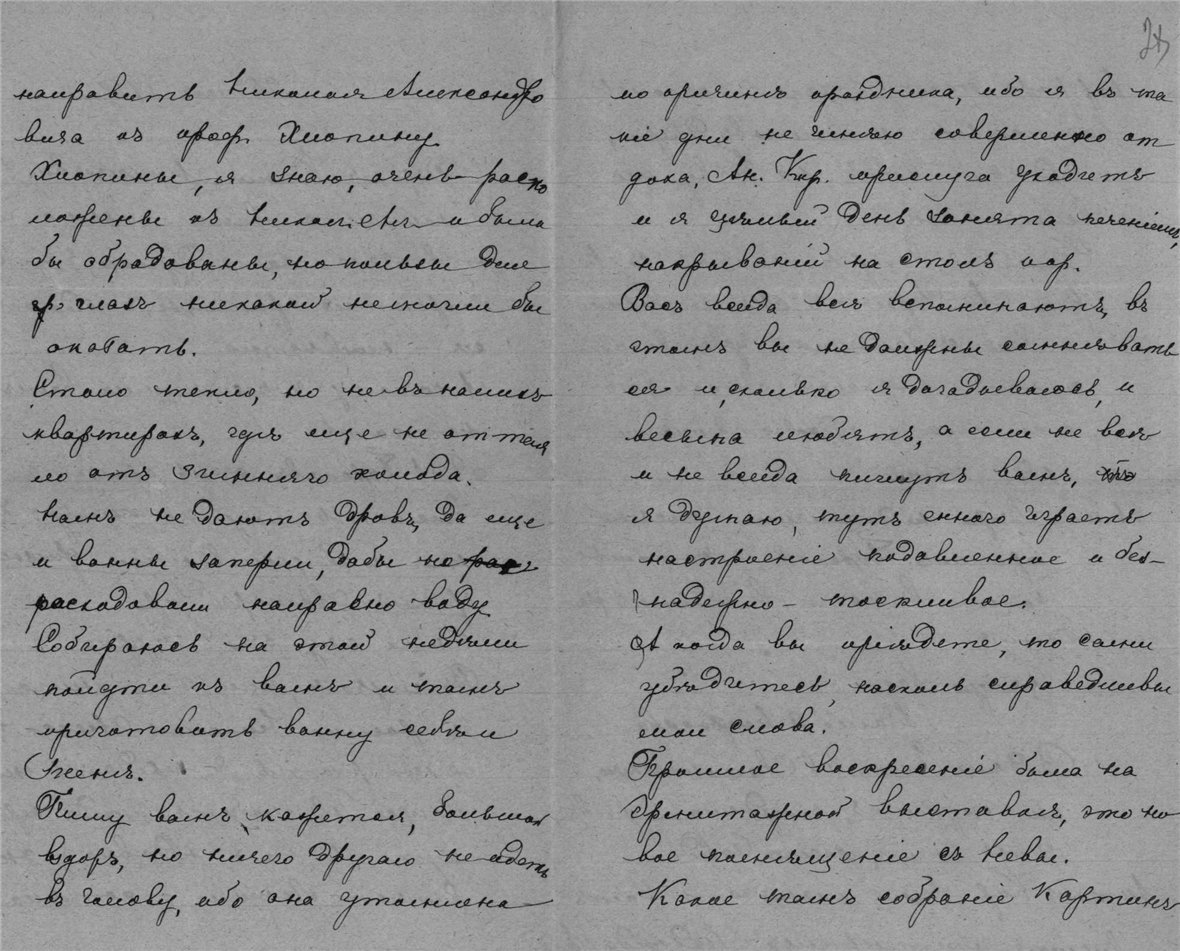 направить Николая Александро
вича къ проф. Хлопину
Хлопины, я знаю, очень распо
ложены къ Никол. Ал. и были
бы обрадованы, но пользы для
глазъ никакой не могли бы
оказать.
Стало тепло, но не въ нашихъ
квартирахъ, где еще не оттепл
ло отъ зимняго холода.
Намъ не даютъ дровъ, да еще
и ванны заперли, дабы не рас
расходовали напрасно воду
Собираюсь на этой неделли
пойдти къ вамъ и тамъ
приготовить ванну себе и
Жене.
Пишу вамъ, кажется, большой
вздоръ, но ничего другого не идетъ
въ голову, ибо она утомлена
24
по причине праздника, ибо я въ та
кіе дни не имею совершенно от
дыха, Ан. Кир. прислуга уходитъ
и я целый день занята печеніемъ,
накрываній на столъ пр.
Васъ всегда все вспоминаютъ, въ
этомъ вы не должны сомневать
ся и, сколько я догадываюсь, и
весьма любятъ, а если не все
и не всегда пишутъ вамъ,
я думаю, тутъ много играетъ
настроеніе подавленное и без-
надежно - тоскливое.
А когда вы пріедете, то сами
убедитесь, насколь справедливы
мои слова.
Прошлое воскресеніе была на
Эрмитажной выставке, это но
вое помещеніе съ Невы.
Какое тамъ собраніе Картинъ